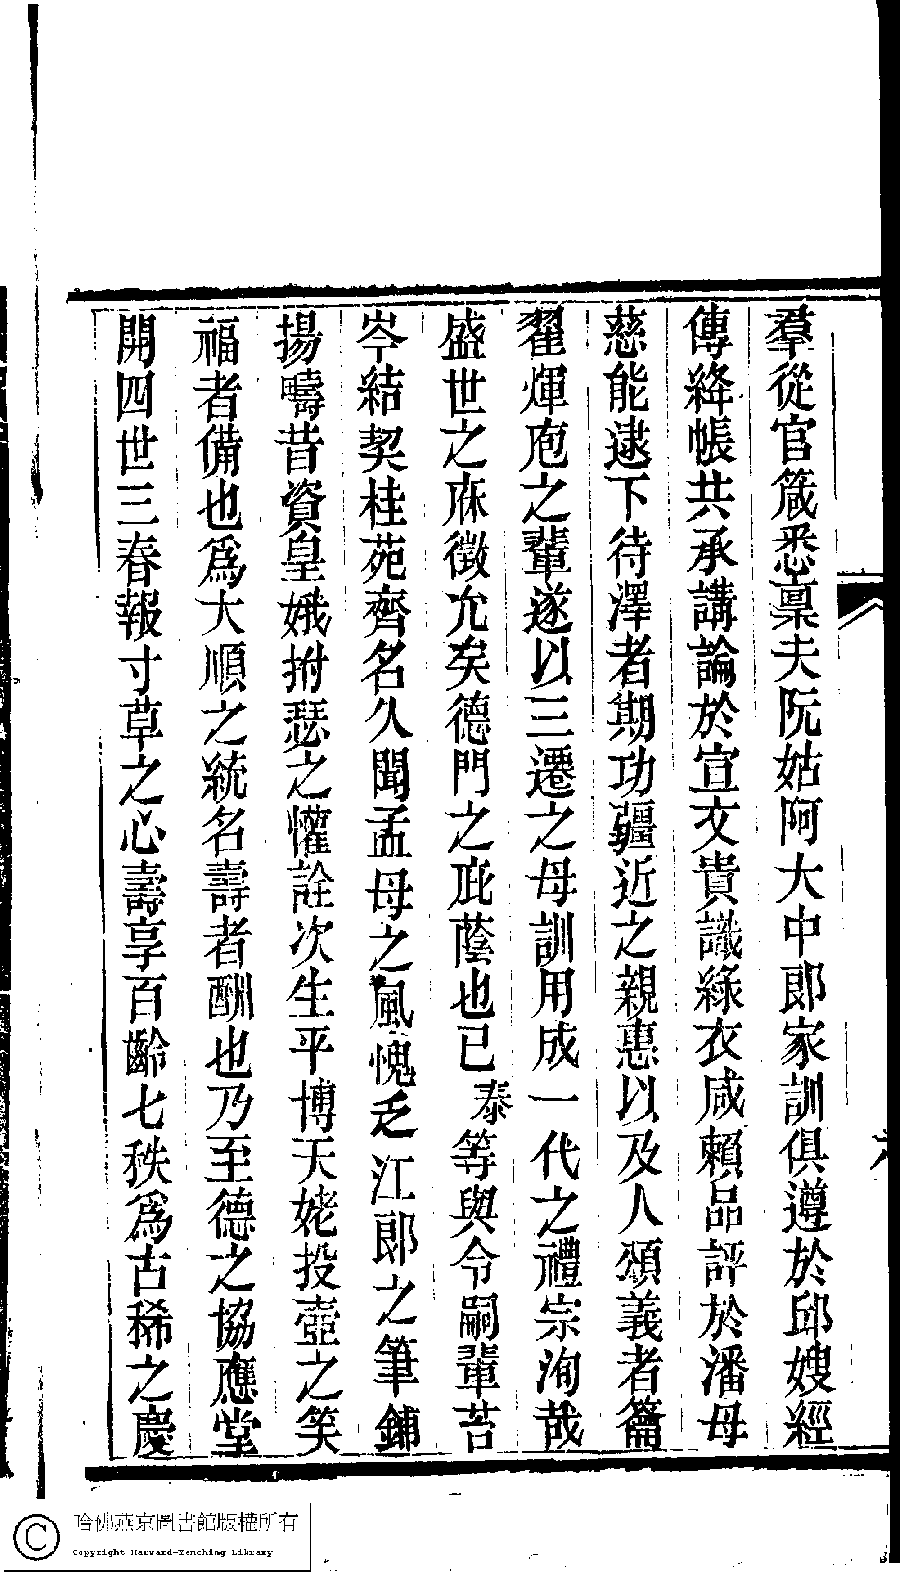 羣從官箴悉稟夫阮姑阿大中郎家訓俱遵於邱嫂經
傳絳帳共承講論於宣文貴識綠衣咸賴品評於潘母
慈能逮下待澤者期功疆近之親惠以及人頌義者籥
翟煇庖之輩遂以三遷之母訓用成一代之禮宗洵哉
盛世之庥徵允矣德門之庇蔭也已泰等與令嗣輩苔
岑結契桂苑齊名久聞孟母之風愧乏江郎之筆鋪
揚疇昔資皇娥拊瑟之懽詮次生平博天姥投壺之笑
福者備也爲大順之統名壽者酬也乃至德之協應堂
開四世三春報寸草之心壽享百齡七秩爲古稀之慶
哈佛燕京圖書館版權所有
Copyright Harvard-Yenching Library